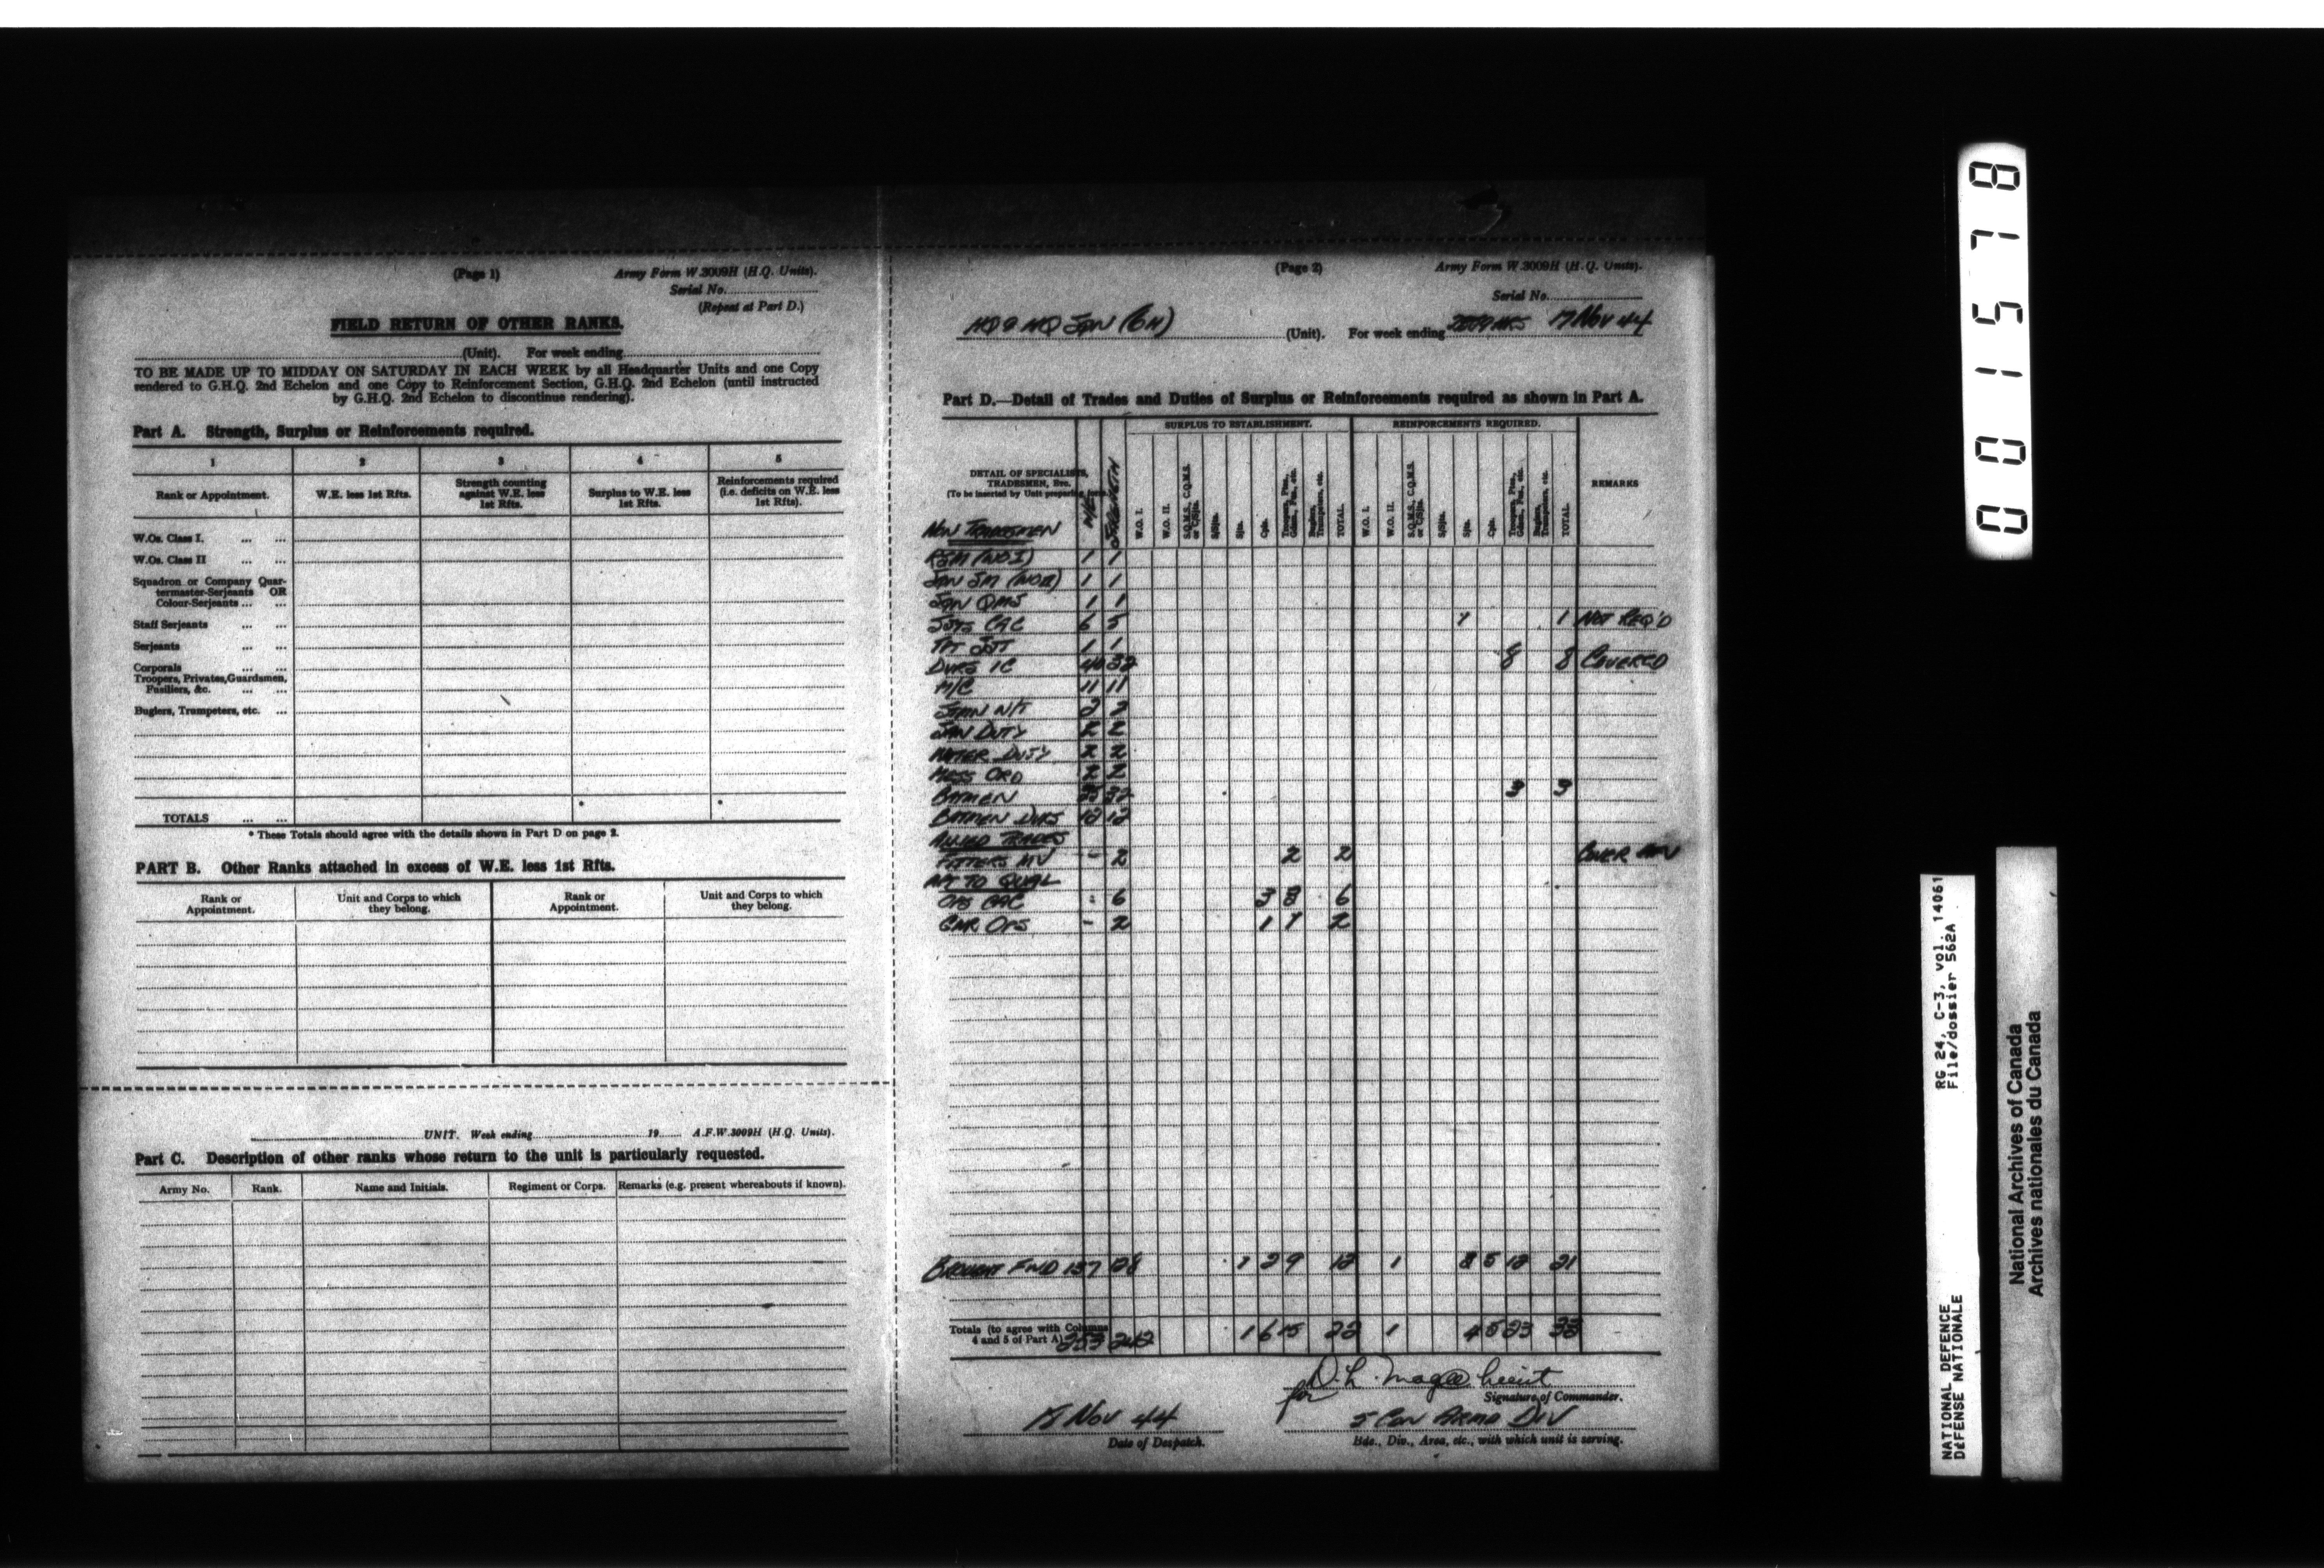 (Page 1)
Army Form W.3009H (H.Q. Units).
Serial No.
(Repeat at Part D.)
FIELD RETURN OF OTHER RANKS.
(Unit). For week ending
TO BE MADE UP TO MIDDAY ON SATURDAY IN EACH WEEK by all Headquarter Units and one Copy
rendered to G.H.Q. 2nd Echelon and one Copy to Reinforcement Section, G.H.Q. 2nd Echelon (until instructed
by G.H.Q. 2nd Echelon to discontinue rendering).
Part A. Strength, Surplus or Reinforcements required.
1 2 3 4 5
Rank or Appointment.
W.E. less 1st Rfts.
Strength counting
against W.E. less
1st Rfts.
Surplus to W.E. less
1st Rfts.
Reinforcements required
(i.e. deficits on W.E. less
1st Rfts).
W.Os. Class I. ... ...
W.Os. Class II ... ...
Squadron or Company Quar-
termaster-Serjeants OR
Colour-Serjeants ... ...
Staff Serjeants ... ...
Serjeants ... ...
Corporals ... ...
Troopers, Privates, Guardsmen,
Fusiliers, &c. ... ...
Buglers, Trumpeters, etc. ...
TOTALS ... ...
* *
* These Totals should agree with the details shown in Part D on page 2.
PART B. Other Ranks attached in excess of W.E. less 1st Rfts.
Rank or
Appointment.
Unit and Corps to which
they belong.
Rank or
Appointment.
Unit and Corps to which
they belong.
UNIT. Week ending 19 A.F.W.3009H (H.Q. Units).
Part C. Description of other ranks whose return to the unit is particularly requested.
Army No. Rank. Name and Initials. Regiment or Corps. Remarks (e.g. present whereabouts if known).
(Page 2)
Army Form W.3009H (H.Q. Units).
Serial No.
HQ & HQ SQN (GH) (Unit). For week ending 17 NOV 44
Part D.—Detail of Trades and Duties of Surplus or Reinforcements required as shown in Part A.
DETAIL OF SPECIALISTS,
TRADESMEN, Etc.
(To be inserted by Unit preparing form)
W/E
STRENGTH
SURPLUS TO ESTABLISHMENT.
W.O. I.
W.O. II.
S.Q.M.S., C.Q.M.S.
or C/Sjts.
S/Sjts.
Sjts.
Cpls.
Troopers, Ptes.,
Gdsm., Fus., etc.
Buglers,
Trumpeters, etc.
TOTAL.
REINFORCEMENTS REQUIRED.
W.O. I.
W.O. II.
S.Q.M.S., C.Q.M.S.
or C/Sjts.
S/Sjts.
Sjts.
Cpls.
Troopers, Ptes.,
Gdsm., Fus., etc.
Buglers,
Trumpeters, etc.
TOTAL.
REMARKS
NON TRADESMEN
RSM (WO I) 1 1
SQN SM (WO II) 1 1
SQN QMS 1 1
SJTS CAC 6 5 1 1 NOT REQ'D
TPT SJT 1 1
DVRS IC 40 32 8 8 COVERED
M/C 11 11
STMN N/T 2 2
SAN DUTY 2 2
WATER DUTY 2 2
MESS ORD 2 2
BATMEN 35 32 3 3
BATMEN DVRS 12 12
ALLIED TRADES
FITTERS MV - 2 2 2
NOT TO QUAL
OPS CAC - 6 3 3 6
GNR OPS - 2 1 1 2
BROUGHT FWD 137 128 1 2 9 12 1 3 5 12 21
Totals (to agree with Columns
4 and 5 of Part A) 253 242 1 6 15 22 1 4 5 23 33
for D.L. Magee Lieut
Signature of Commander.
18 NOV 44
Date of Despatch.
5 CDN ARMD DIV
Bde., Div., Area, etc., with which unit is serving.
001578
RG 24, C-3, vol. 14061
File/dossier 562A
NATIONAL DEFENCE
DÉFENSE NATIONALE
National Archives of Canada
Archives nationales du Canada